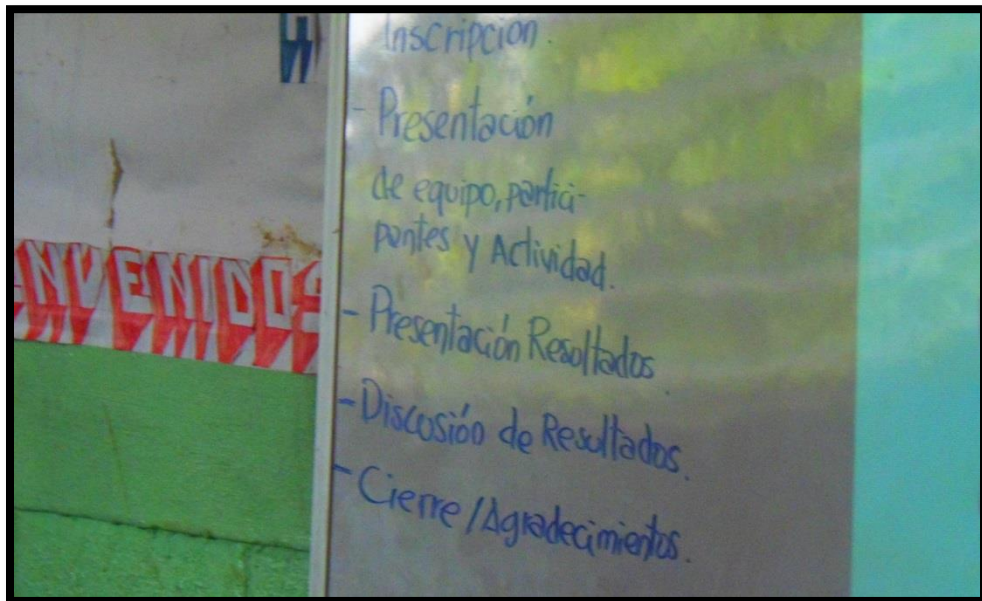 Inscripcion.
- Presentación
de equipo, partici-
pantes y Actividad.
- Presentación Resultados.
- Discusión de Resultados.
- Cierre/Agradecimientos.
ENVENIDOS